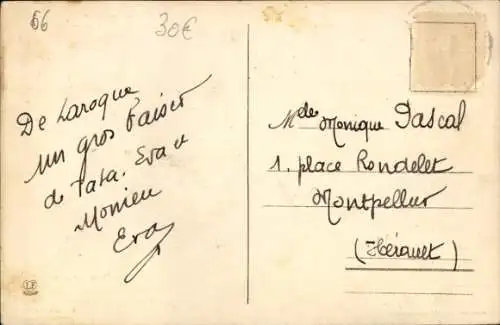 66
30€
De Laroque
un gros baiser
de Tata. Eva et
Monieu
Eva
Melle Monique Pascal
1. place Rondelet
Montpellier
(Hérault)